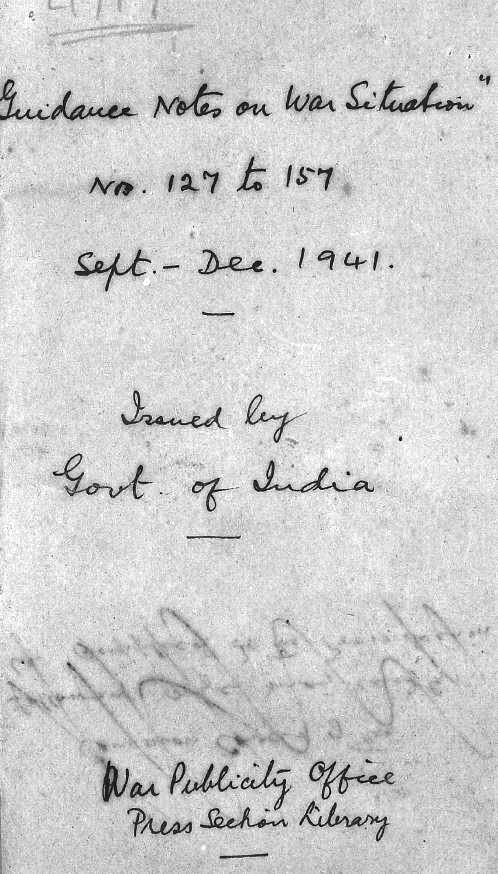 Guidance Notes on War Situation"
Nos. 127 to 157
Sept. - Dec. 1941.
Issued by
Govt. of India
War Publicity Office
Press Section Library